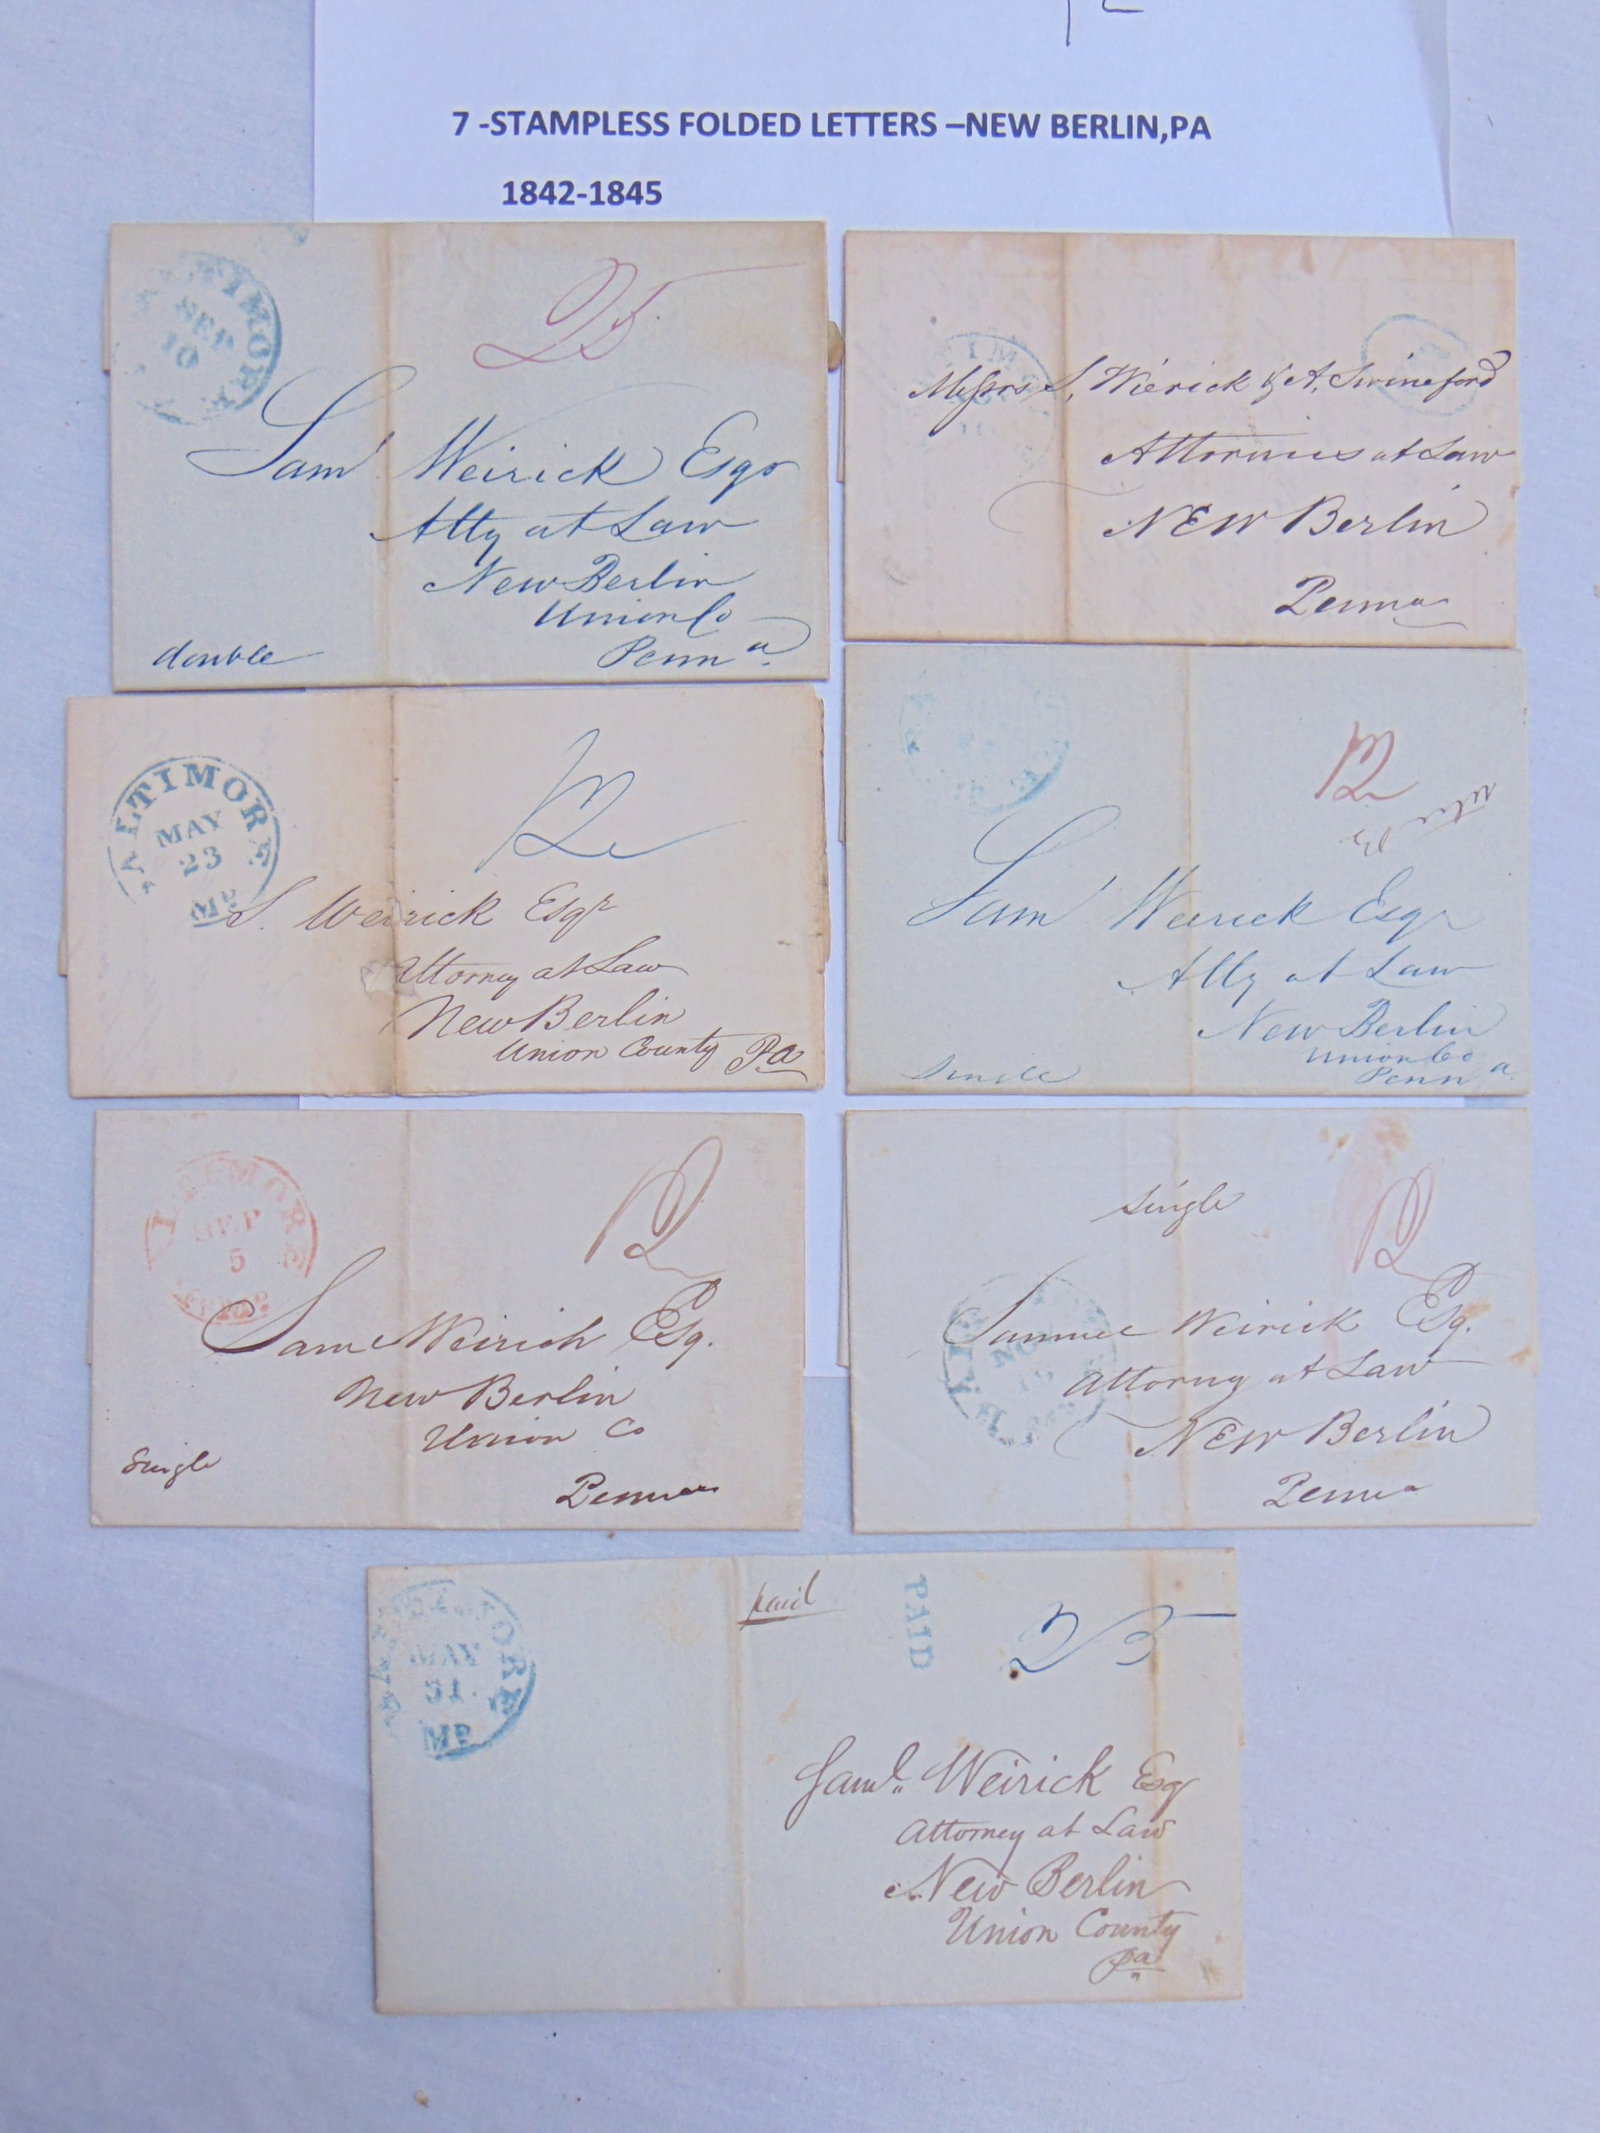 7 -STAMPLESS FOLDED LETTERS –NEW BERLIN,PA
1842-1845
SEP
10
25
Sam' Weirick Esqr
Atty at Law
New Berlin
Union Co
Penna
double
Messrs S, Wierick & A, Swineford
Attornies at Law
NEW Berlin
Penna
BALTIMORE
MAY
23
MD
12
S. Weirick Esqr
Attorney at Law
New Berlin
Union County Pa
12
Sam' Weirick Esqr
Atty at Law
New Berlin
Union Co
Penna
Single
SEP
5
12
Sam Weirich Esq.
New Berlin
Union Co
Penna
Single
Single
12
Samuel Weirick Esq.
Attorny at Law
NEW Berlin
Penna
BALTIMORE
MAY
31
MD
paid
PAID
25
Saml. Weirick Esq
Attorney at Law
New Berlin
Union County
Pa